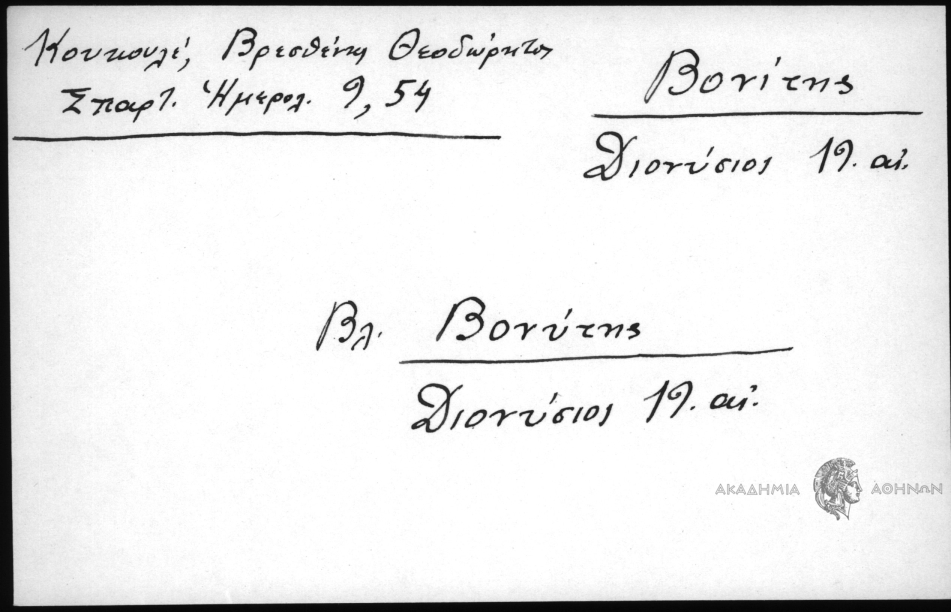 Κουκουλέ, Βρεσθένης Θεοδώρητος
Σπαρτ. Ἡμερολ. 9, 54
Βονίτης
Διονύσιος 19. αἰ.
Βλ. Βονύτης
Διονύσιος 19. αἰ.
ΑΚΑΔΗΜΙΑ ΑΘΗΝΩΝ